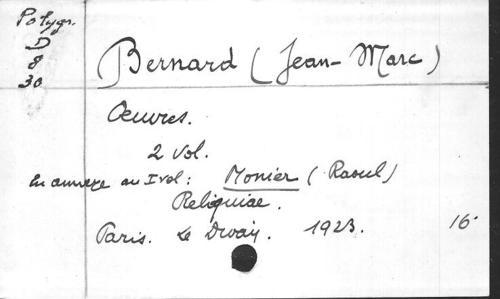 Polygr.
D
8
30
Bernard (Jean-Marc)
Œuvres.
2 vol.
En annexe au I vol: Monier (Raoul)
Reliquiae.
Paris. Le Divan. 1923. 16°